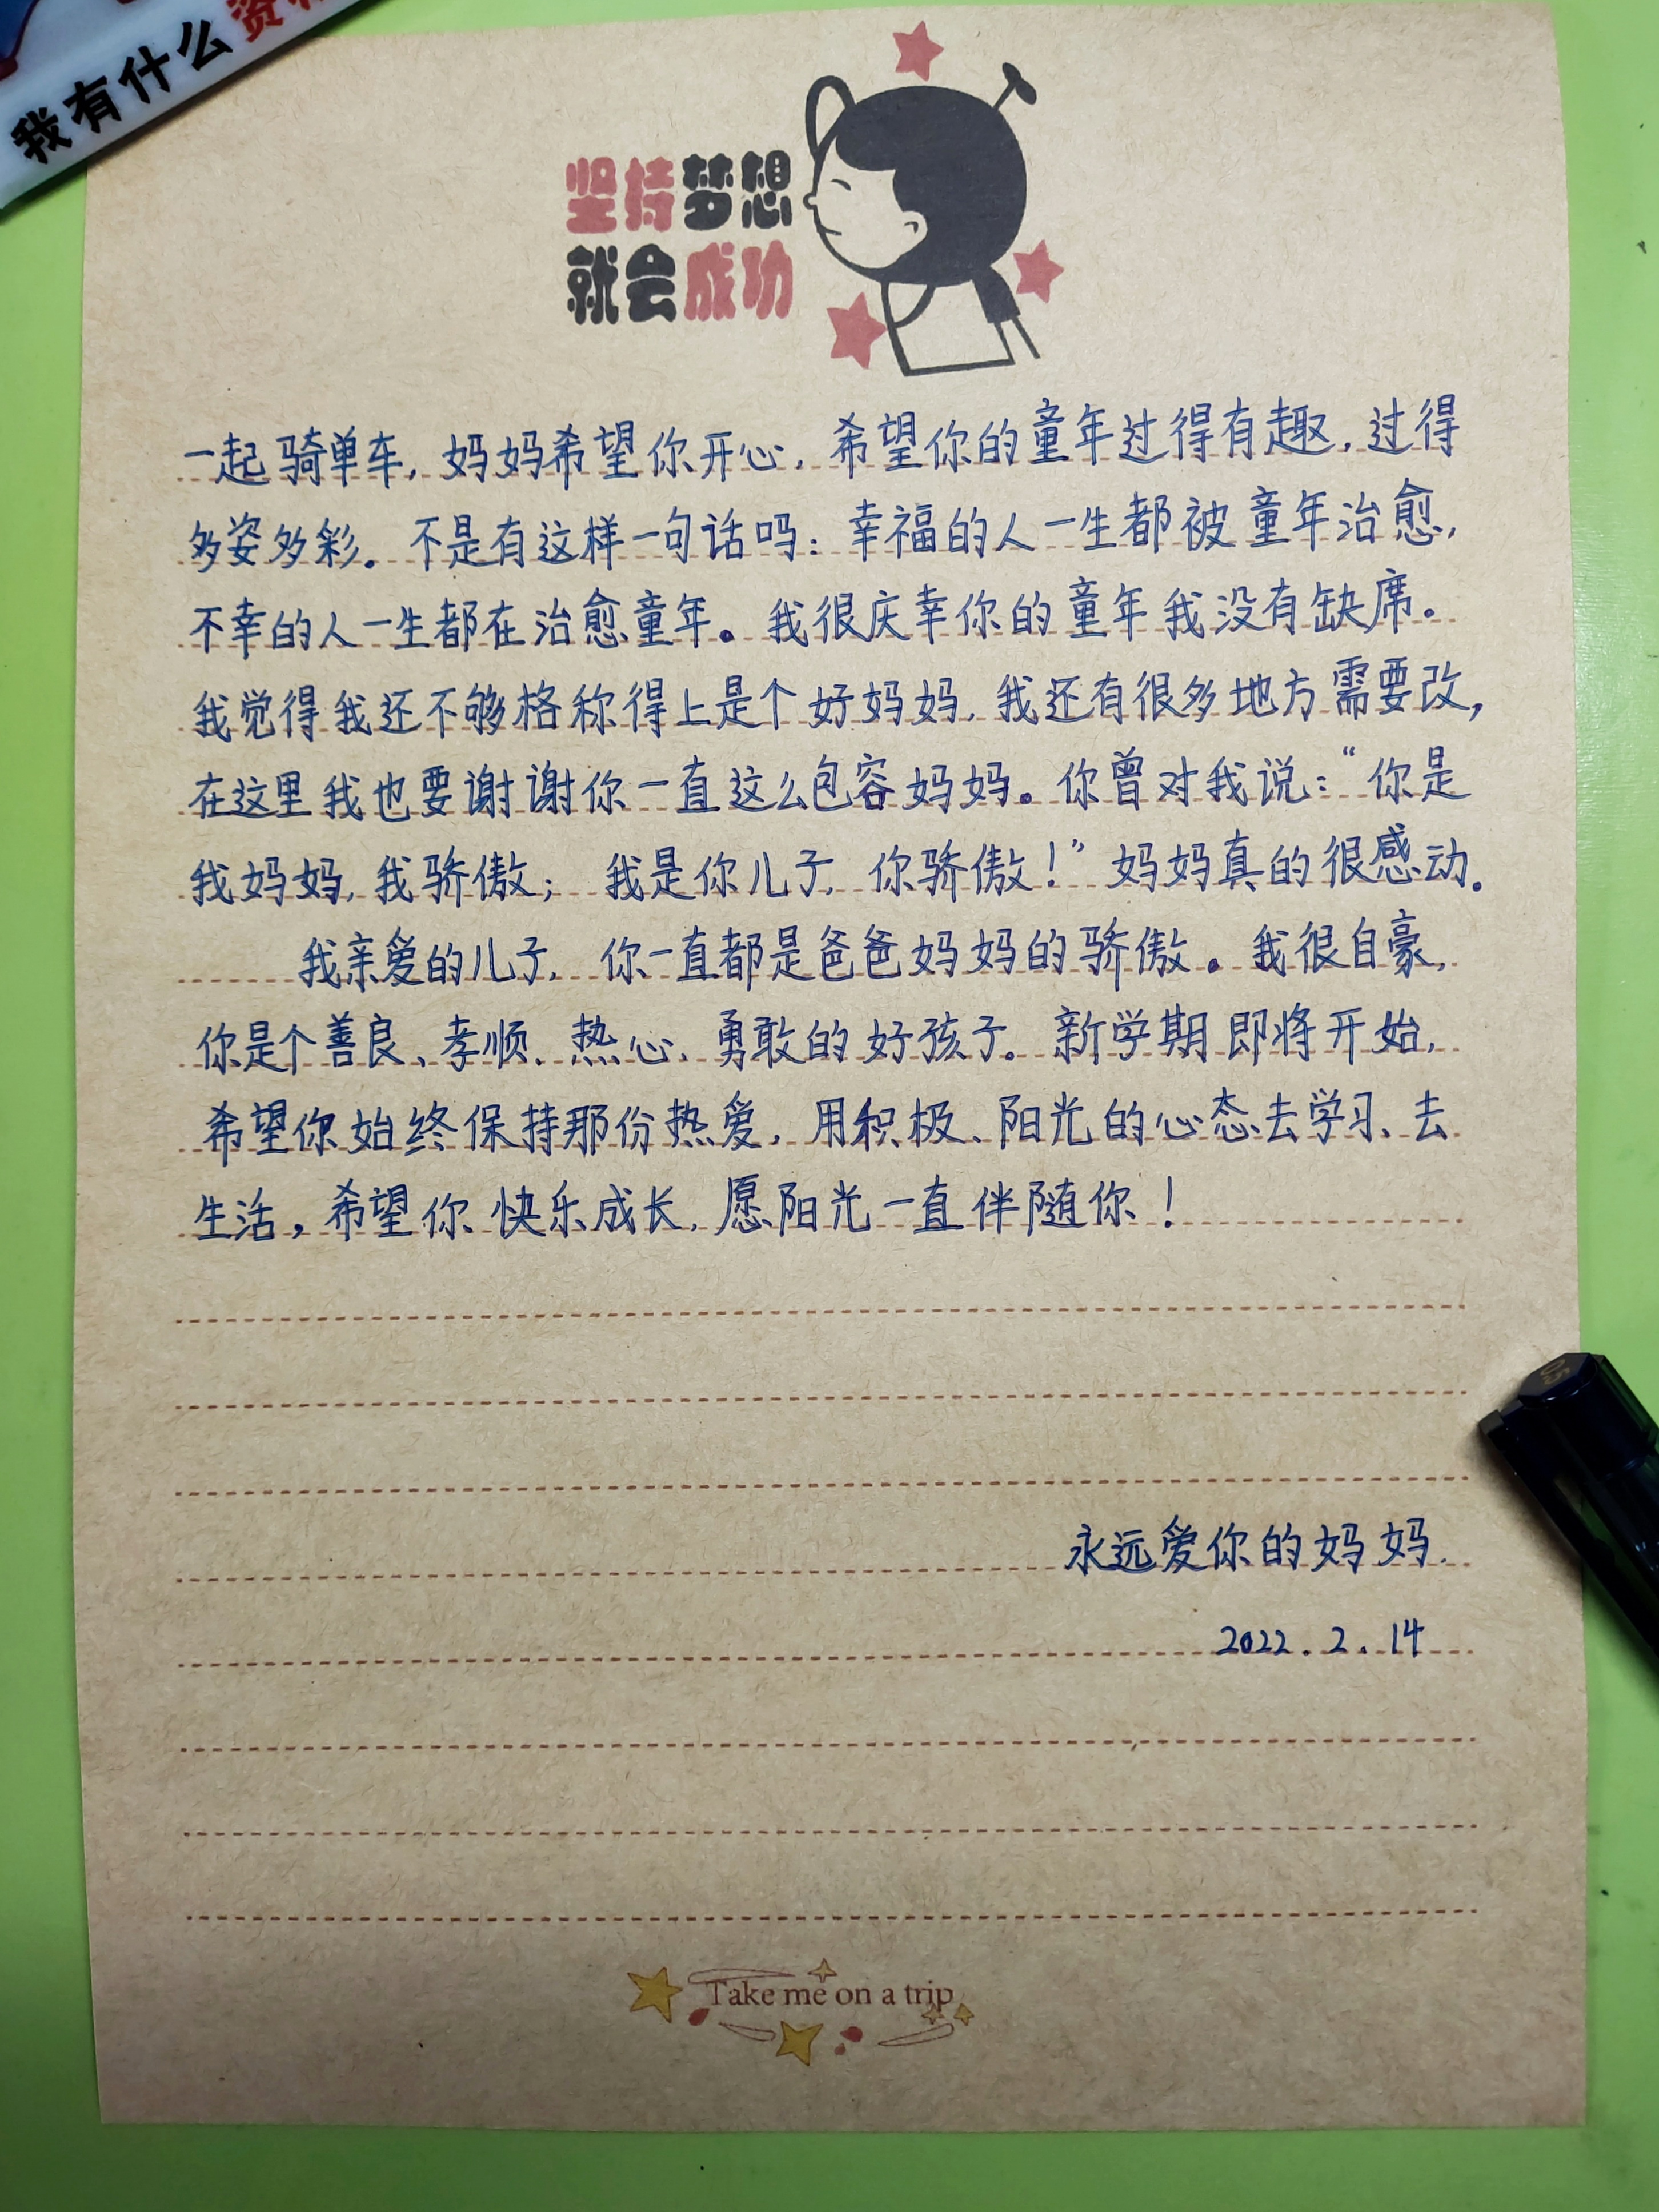 我有什么资
坚持梦想
就会成功
一起骑单车，妈妈希望你开心，希望你的童年过得有趣，过得
多姿多彩。不是有这样一句话吗：幸福的人一生都被童年治愈，
不幸的人一生都在治愈童年。我很庆幸你的童年我没有缺席。
我觉得我还不够格称得上是个好妈妈，我还有很多地方需要改，
在这里我也要谢谢你一直这么包容妈妈。你曾对我说：“你是
我妈妈，我骄傲；我是你儿子，你骄傲！”妈妈真的很感动。
我亲爱的儿子，你一直都是爸爸妈妈的骄傲。我很自豪，
你是个善良、孝顺、热心、勇敢的好孩子。新学期即将开始，
希望你始终保持那份热爱，用积极、阳光的心态去学习、去
生活，希望你快乐成长，愿阳光一直伴随你！
永远爱你的妈妈.
2022.2.14
05
Take me on a trip